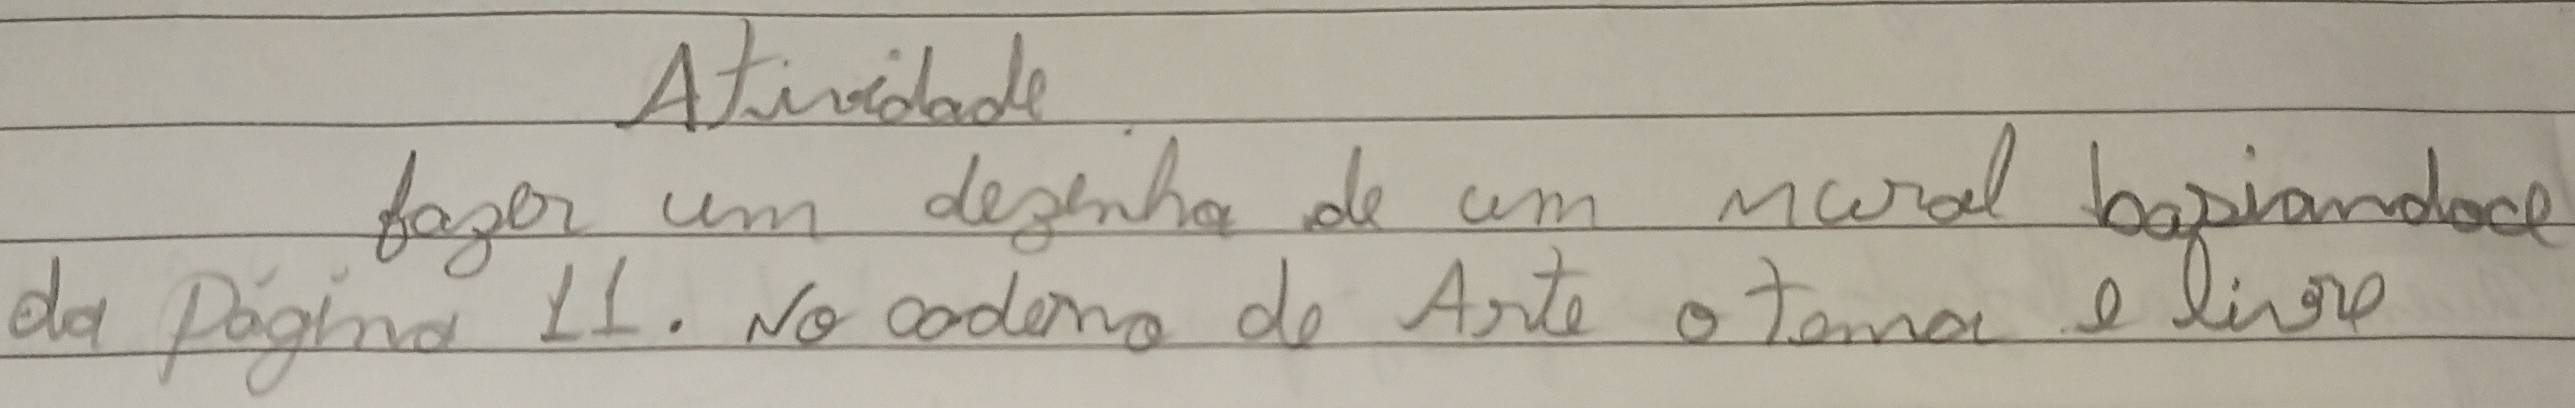 Atividade
fazer um dezenho de um mural baziandoce
da Página 11. No caderno de Arte o tema e livre